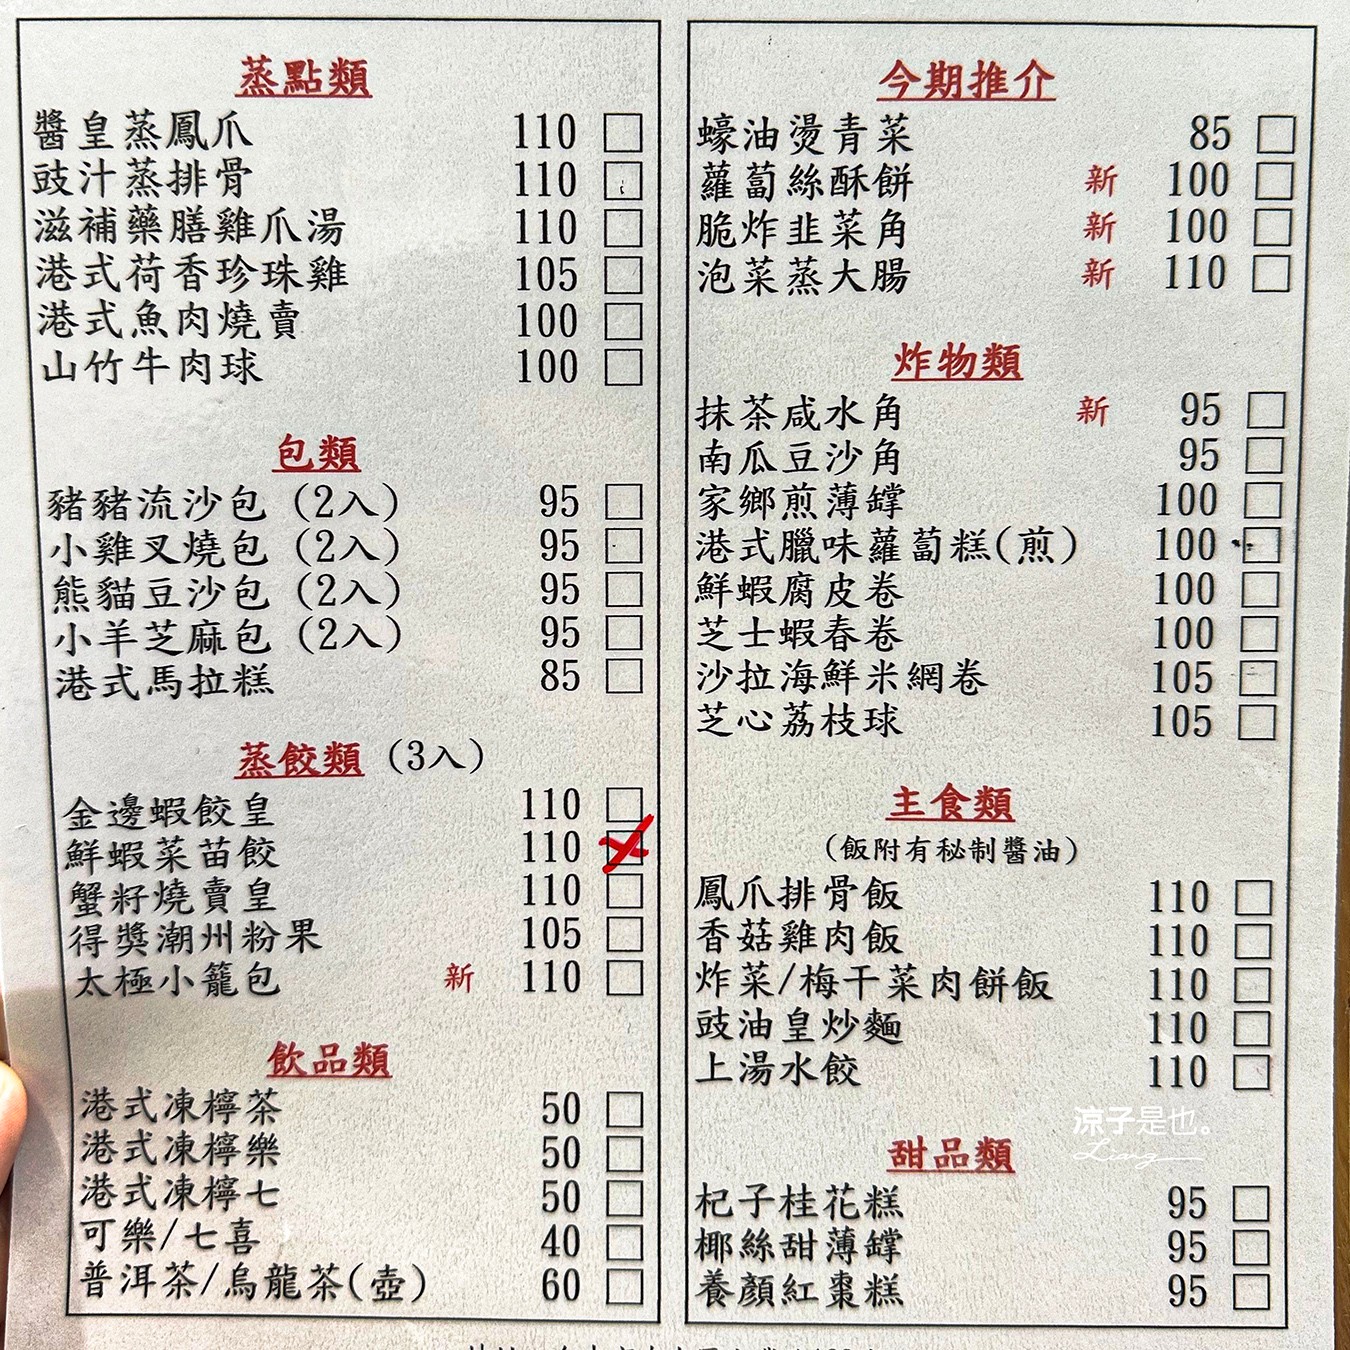 蒸點類
醬皇蒸鳳爪 110
豉汁蒸排骨 110
滋補藥膳雞爪湯 110
港式荷香珍珠雞 105
港式魚肉燒賣 100
山竹牛肉球 100
包類
豬豬流沙包 (2入) 95
小雞叉燒包 (2入) 95
熊貓豆沙包 (2入) 95
小羊芝麻包 (2入) 95
港式馬拉糕 85
蒸餃類 (3入)
金邊蝦餃皇 110
鮮蝦菜苗餃 110
蟹籽燒賣皇 110
得獎潮州粉果 105
太極小籠包 新 110
飲品類
港式凍檸茶 50
港式凍檸樂 50
港式凍檸七 50
可樂/七喜 40
普洱茶/烏龍茶(壺) 60
今期推介
蠔油燙青菜 85
蘿蔔絲酥餅 新 100
脆炸韭菜角 新 100
泡菜蒸大腸 新 110
炸物類
抹茶咸水角 新 95
南瓜豆沙角 95
家鄉煎薄罉 100
港式臘味蘿蔔糕(煎) 100
鮮蝦腐皮卷 100
芝士蝦春卷 100
沙拉海鮮米網卷 105
芝心荔枝球 105
主食類
(飯附有秘制醬油)
鳳爪排骨飯 110
香菇雞肉飯 110
炸菜/梅干菜肉餅飯 110
豉油皇炒麵 110
上湯水餃 110
甜品類
杞子桂花糕 95
椰絲甜薄罉 95
養顏紅棗糕 95
涼子是也。
Liang